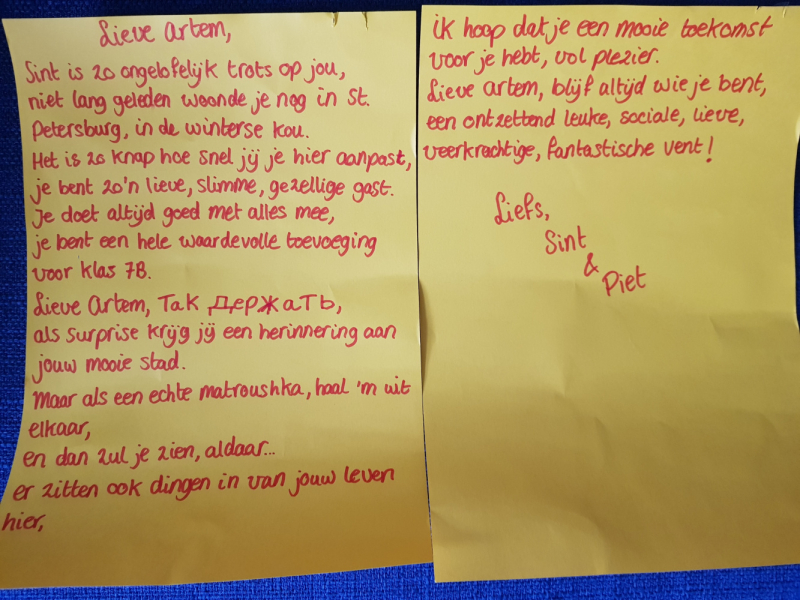 Lieve Artem,
Sint is zo ongelofelijk trots op jou,
niet lang geleden woonde je nog in St.
Petersburg, in de winterse kou.
Het is zo knap hoe snel jij je hier aanpast,
je bent zo'n lieve, slimme, gezellige gast.
Je doet altijd goed met alles mee,
je bent een hele waardevolle toevoeging
voor klas 7B.
Lieve Artem, Так держать,
als surprise krijg jij een herinnering aan
jouw mooie stad.
Maar als een echte matroushka, haal 'm uit
elkaar,
en dan zul je zien, aldaar...
er zitten ook dingen in van jouw leven
hier,
ik hoop dat je een mooie toekomst
voor je hebt, vol plezier.
Lieve Artem, blijf altijd wie je bent,
een ontzettend leuke, sociale, lieve,
veerkrachtige, fantastische vent!
Liefs,
Sint
&
Piet